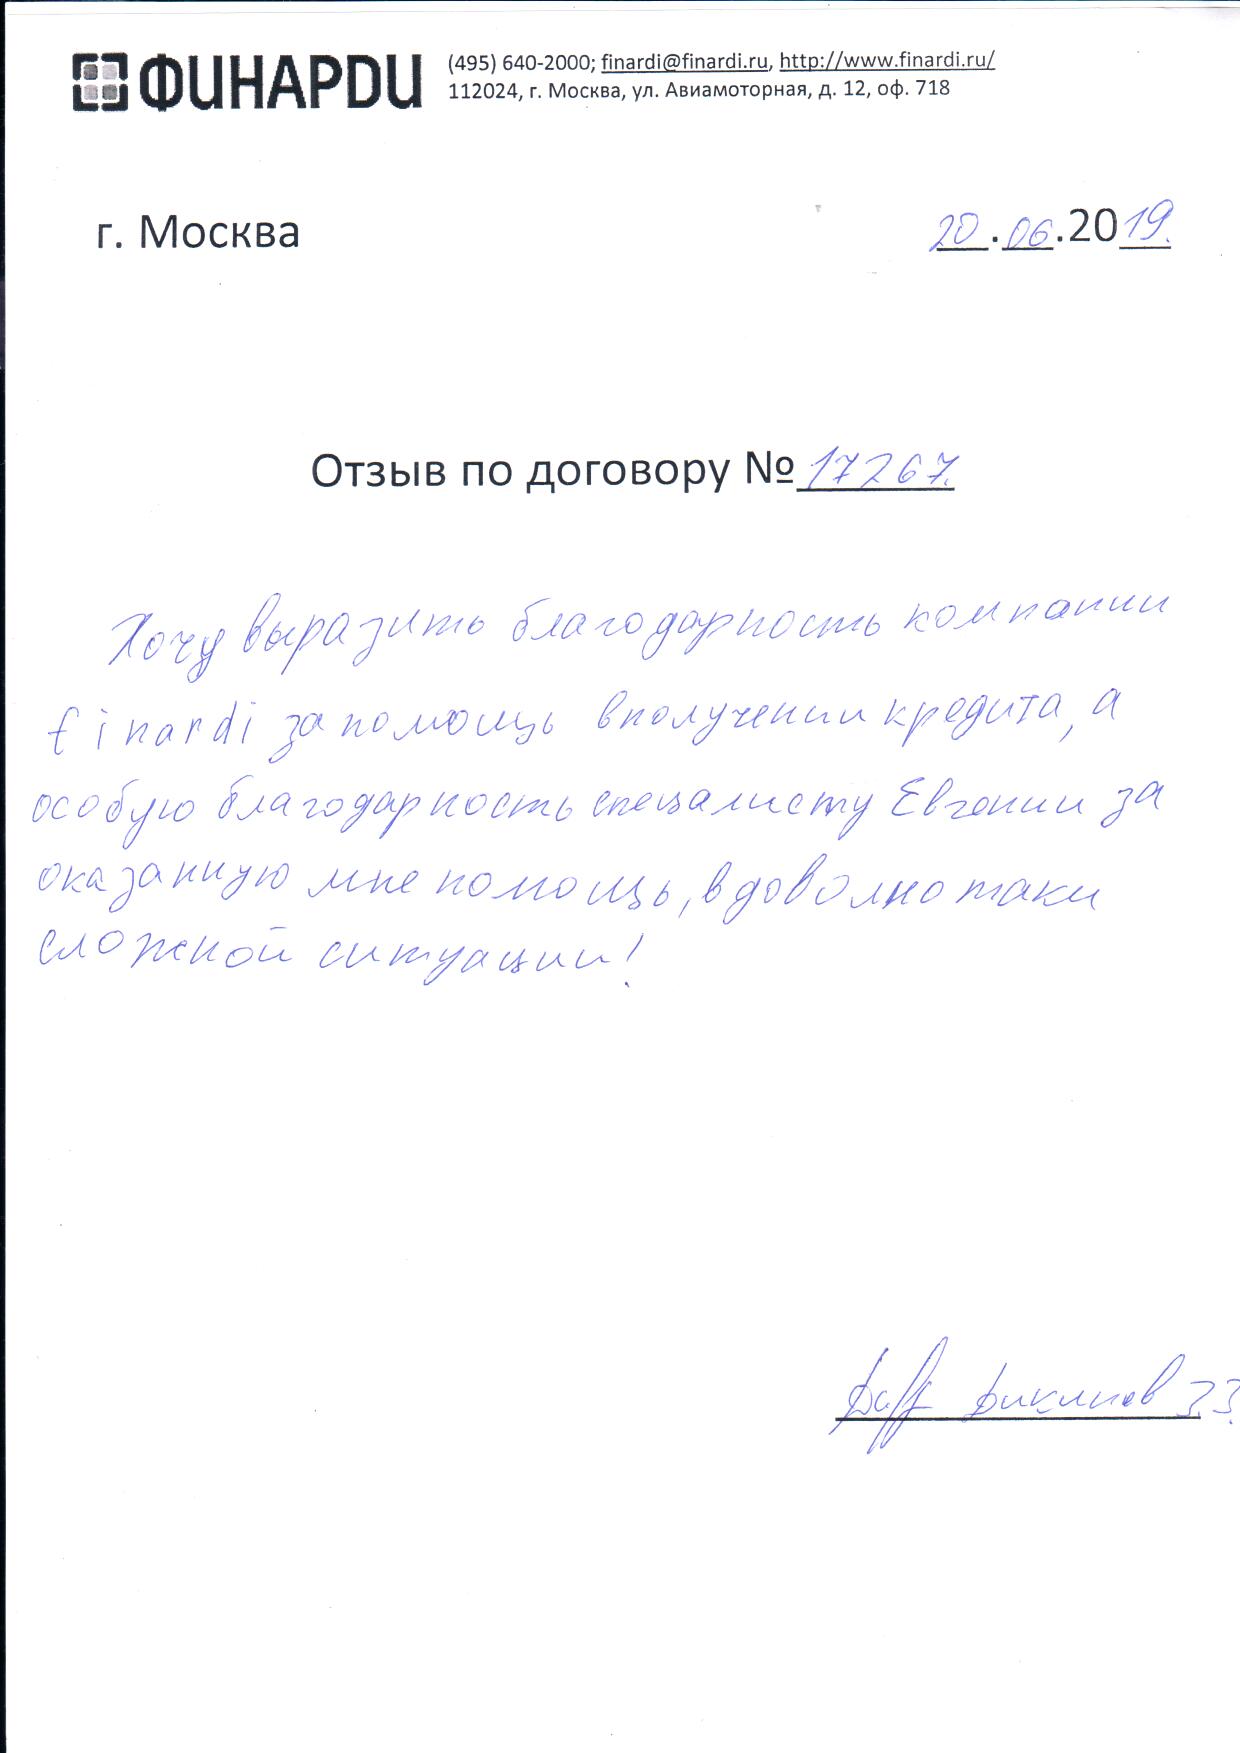 ФИНАРDИ
(495) 640-2000; finardi@finardi.ru, http://www.finardi.ru/
112024, г. Москва, ул. Авиамоторная, д. 12, оф. 718
г. Москва 20.06.2019.
Отзыв по договору № 17267.
Хочу выразить благодарность компании
finardi за помощь в получении кредита, а
особую благодарность спецалисту Евгении за
оказанную мне помощь, в доволно таки
сложной ситуации!
З.З.